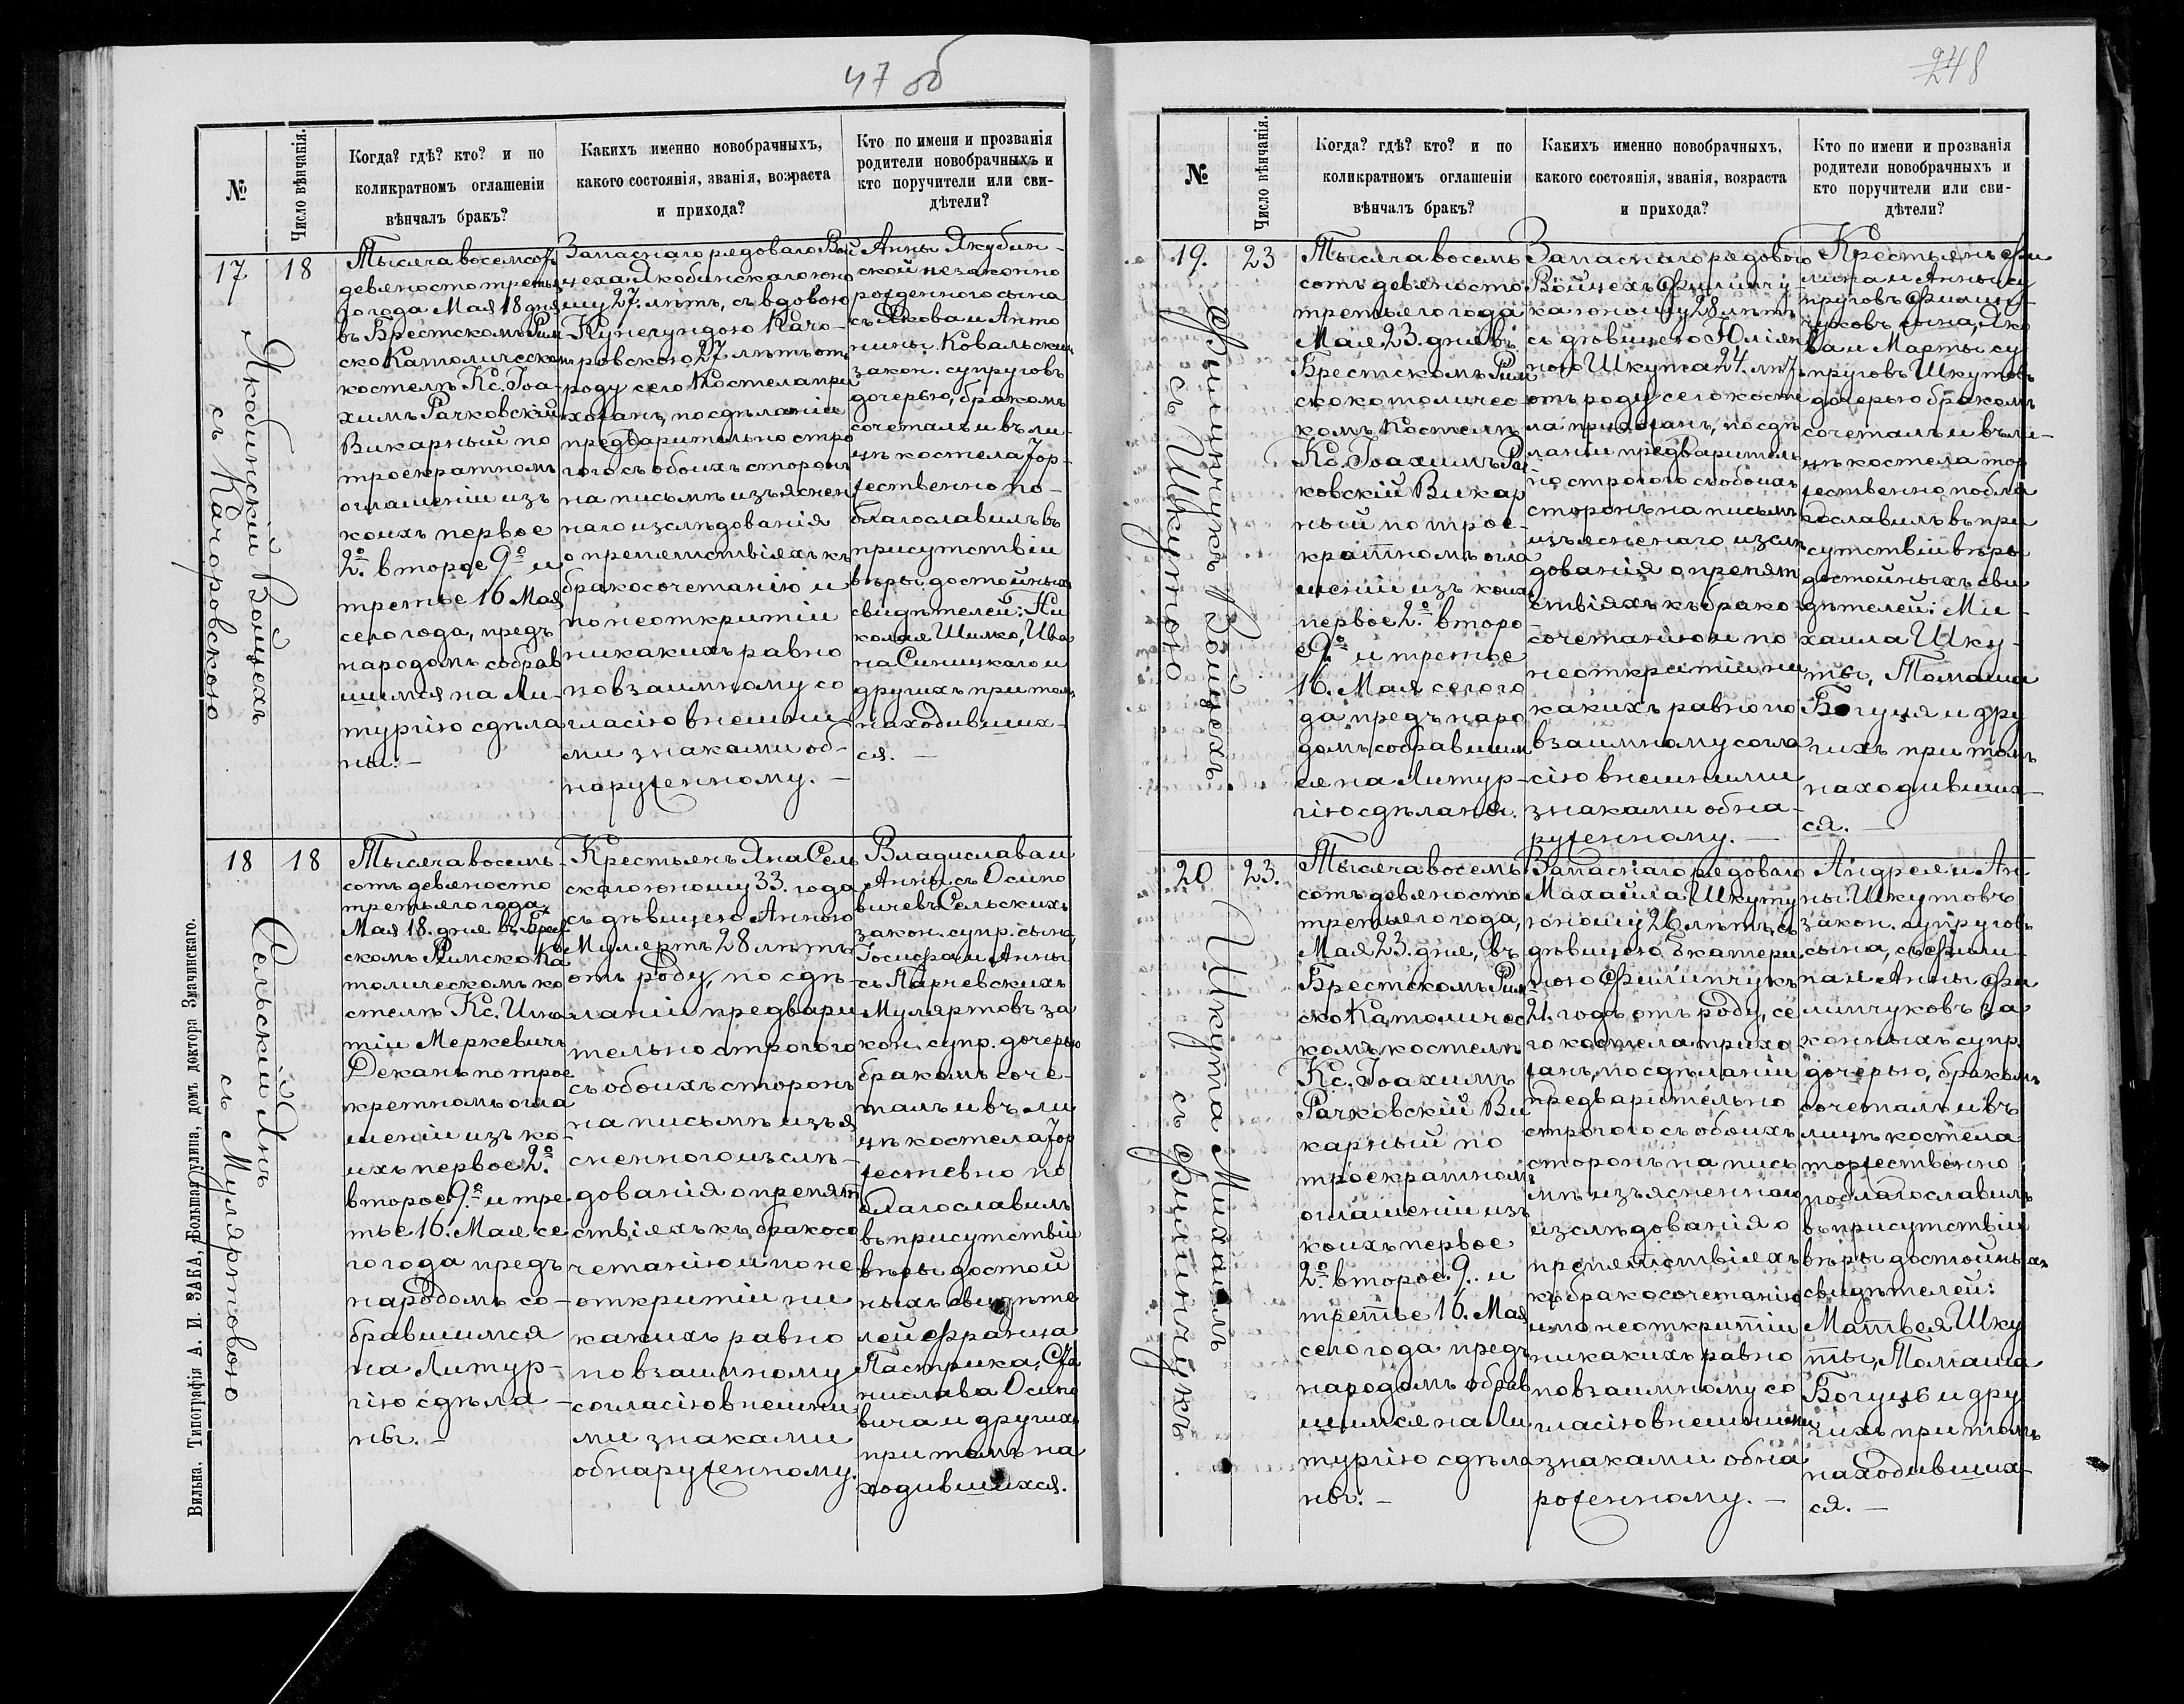 47 об
№
Число вѣнчанія.
Когда? гдѣ? кто? и по
коликратномъ оглашеніи
вѣнчалъ бракъ?
Какихъ именно новобрачныхъ,
какого состоянія, званія, возраста
и прихода?
Кто по имени и прозванія
родители новобрачныхъ и
кто поручители или сви-
дѣтели?
17
18
Якобинскій Войцехъ
съ Качоровскою
Тысяча восемсотъ
девяносто треть
яго года Мая 18 дня
въ Брестскомъ Рим
ско Католическомъ
костелѣ Кс. Іоа-
химъ Рачковскій
Викарный по
троекратномъ
оглашеніи изъ
коихъ первое
2º. второе 9º и
третье 16 Мая
сего года, предъ
народомъ собрав
шимся на Ли-
тургію сдѣла
ны. -
Запаснаго рядоваго Вой
цеха Якобинскаго юно
шу 27. лѣтъ, съ вдовою
Кунегундою Качо-
ровскою 27 лѣтъ отъ
роду сего Костела при
хожанъ, по сдѣланіи
предварительно стро
гого съ обоихъ сторонъ
на письмѣ изъяснен
наго изслѣдованія
о препятствіяхъ къ
бракосочетанію и
по неоткритіи
никакихъ равно
по взаимному со
гласію внешни-
ми знаками об-
наруженному. -
Анны Якубин-
ской незаконно
рожденного сына
съ Якова и Анто
нины Ковальскихъ
закон. супруговъ
дочерью, бракомъ
сочеталъ и въ ли-
цѣ костела тор-
жественно по-
благославилъ въ
присутствіи
вѣры достойныхъ
свидѣтелей: Ни
колая Шилко, Ива
на Синицкаго и
другихъ при томъ
находивших-
ся. -
18
18
Сельскій Янъ
съ Мулярповою
Тысяча восемь-
сотъ девяносто
третьяго года,
Мая 18. дня въ Брест
скомъ Римско Ка
толическомъ ко
стелѣ Кс. Игна
тіи Меркевичъ
Деканъ по трое
кретномъ огла
шеніи изъ ко-
ихъ первое 2º.
второе 9º. и тре
тье 16. Мая се
го года предъ
народомъ со-
бравшимся
на Литур-
гію сдѣла-
ны. -
Крестьянъ Яна Сель
скаго юношу 33. года
съ дѣвицею Анною
Мулертъ 28 лѣтъ
отъ роду, по сдѣ-
ланіи предвари
тельно строгого
съ обоихъ сторонъ
на письмѣ изъя
сненного изслѣ-
дованія о препят
ствіяхъ къ бракосо
четанію и по не
откритіи ни
какихъ равно
по взаимному
согласію внешни
ми знаками
обнаруженному.
Владислава и
Анны съ Осипо
вичевъ Сельскихъ
закон. супр. сына,
Іосифа и Анны
съ Парчевскихъ
Муляртовъ за
кон. супр. дочерью
бракомъ соче-
талъ и въ ли
цѣ костела тор
жествено по
благославилъ
въ присутствіи
вѣры достой
ныхъ свидѣте
лей Франца
Пастрика, Ста
нислава Осипо
вича и другихъ
при томъ на
ходившихся.
Вильна, Типографія А. И. ЗАКА, Большая улица, домъ доктора Змачинскаго.
248
№
Число вѣнчанія.
Когда? гдѣ? кто? и по
коликратномъ оглашеніи
вѣнчалъ бракъ?
Какихъ именно новобрачныхъ,
какого состоянія, званія, возраста
и прихода?
Кто по имени и прозванія
родители новобрачныхъ и
кто поручители или сви-
дѣтели?
19.
23
Филипчукъ Войцехъ
съ Шкутою
Тысяча восемь
сотъ девяносто
третьяго года
Мая 23. дня въ
Брестскомъ Рим
ско католичес-
комъ костелѣ
Кс. Іоахимъ Рач
ковскій Викар
ный по трое-
кратномъ огла
шеніи изъ коихъ
первое 2º. второ
е 9º. и третье
16. Мая сего го
да предъ наро
домъ собравшим
ся на Литур-
гію сдѣланы.
Запаснаго рядового
Войцехъ Филипчу-
ка юношу 28 лѣтъ
съ дѣвицею Юліян
ною Шкута 24. лѣтъ
отъ роду сего косте
ла прихожанъ, по сдѣ
ланіи предваритель
но строгого съ обоихъ
сторонъ на письмѣ
изъясненаго изслѣ
дованія о препят
ствіяхъ къ брако-
сочетанію и по
неоткритіи ни
какихъ равно по
взаимному согла
сію внешними
знаками обна-
руженному. -
Крестьянъ Фи
липа и Анны су
пруговъ Филип-
чуковъ сына, Яко
ва и Марты су
пруговъ Шкутовъ
дочерью бракомъ
сочеталъ и въ ли-
цѣ костела тор
жественно побла
гославилъ въ при
сутствіи вѣры
достойныхъ сви
дѣтелей: Ми-
хаила Шку-
ты, Томаша
Богуця и дру
гихъ при томъ
находивших-
ся. -
20
23.
Шкута Михаилъ
съ Филипчукъ
Тысяча восемь
сотъ девяносто
третьяго года,
Мая 23. дня, въ
Брестскомъ Рим
ско Католичес
комъ костелѣ
Кс. Іоахимъ
Рачковскій Ви
карный по
троекратномъ
оглашеніи изъ
коихъ первое
2º. второе 9. и
третье 16. Мая
сего года предъ
народомъ собрав
шимся на Ли
тургію сдѣла
ны. -
Запаснаго рядоваго
Махайла Шкуту
юношу 26 лѣтъ, съ
дѣвицею Екатери
ною Филипчукъ
21. годъ отъ роду, се
го костела прихо
жанъ, по сдѣланіи
предварительно
строгого съ обоихъ
сторонъ на пись
мѣ изъясненном
изслѣдованія о
препятствіяхъ
къ бракосочетанію
и по неоткритіи
никакихъ равно
по взаимному со
гласію внешними
знаками обна
роженному. -
Андрея и Ан
ны Шкутовъ
закон. супруговъ
сына, съ Фили
па и Анны Фи
липчуковъ за
конныхъ супр.
дочерью, бракомъ
сочеталъ и въ
лицѣ костела
торжественно
поблагославилъ
въ присутствіи
вѣры достойныхъ
свидѣтелей:
Матвея Шку
ты, Томаша
Богуць и дру
гихъ при томъ
находивших-
ся. -